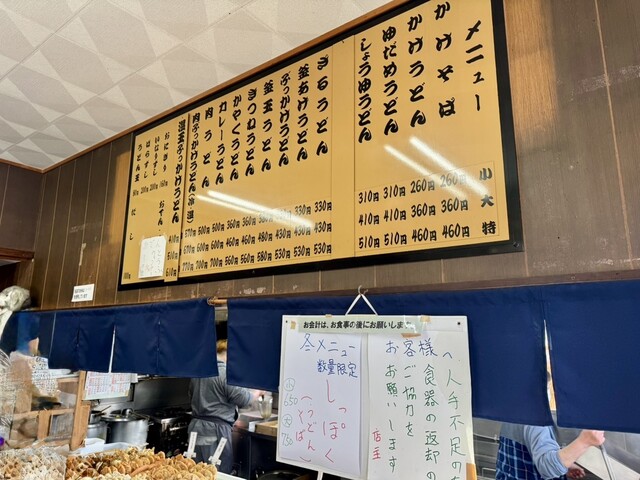 メニュー 小 大 特
かけそば 260円 360円 460円
かけうどん 260円 360円 460円
ゆだめうどん 310円 410円 510円
しょうゆうどん 310円 410円 510円
ざるうどん 330円 430円 530円
釜あげうどん 330円 430円 530円
ぶっかけうどん
釜玉うどん
きつねうどん
かやくうどん 360円 460円 560円
カレーうどん 500円 600円 700円
肉うどん 500円 600円 700円
肉ぶっかけうどん(冷・温) 570円 670円 770円
温玉ぶっかけうどん 410円 510円 610円
おにぎり
いなりずし
ばらずし
うどん玉
おでん
だし
お会計は、お食事の後にお願いします
冬メニュー
数量限定
しっぽく
(うどん
そば)
小 650
大 750
お客様へ
人手不足の
食器の返却の
ご協力を
お願いします
店主